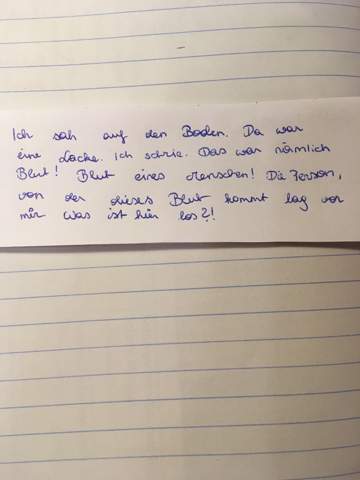 Ich sah auf den Boden. Da war
eine Lacke. Ich schrie. Das war nämlich
Blut! Blut eines Menschen! Die Person,
von der dieses Blut kommt lag vor
mir was ist hier los?!